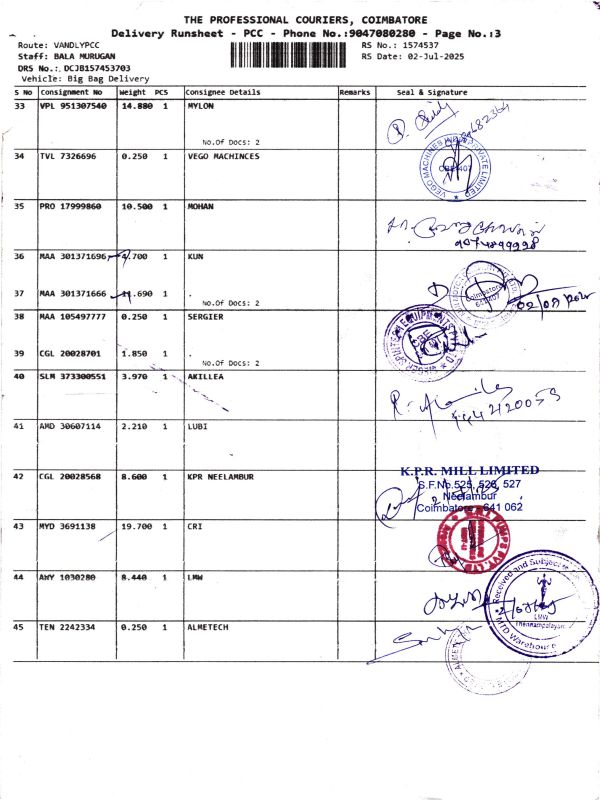 THE PROFESSIONAL COURIERS, COIMBATORE
Delivery Runsheet - PCC - Phone No.:9047080280 - Page No.:3
Route: VANDLYPCC
Staff: BALA MURUGAN
DRS No.: DCJB157453703
Vehicle: Big Bag Delivery
RS No.: 1574537
RS Date: 02-Jul-2025
S No Consignment No Weight PCS Consignee Details Remarks Seal & Signature
33 VPL 951307540 14.880 1 MYLON
No.Of Docs: 2
34 TVL 7326696 0.250 1 VEGO MACHINCES
35 PRO 17999860 10.500 1 MOHAN
9074899928
36 MAA 301371696 9.700 1 KUN
37 MAA 301371666 11.690 1 .
No.Of Docs: 2
38 MAA 105497777 0.250 1 SERGIER
39 CGL 20028701 1.850 1 .
No.Of Docs: 2
40 SLM 373300551 3.970 1 AKILLEA
41 AMD 30607114 2.210 1 LUBI
42 CGL 20028568 8.600 1 KPR NEELAMBUR
K.P.R. MILL LIMITED
S.F.No.525, 526, 527
Neelambur
Coimbatore - 641 062
43 MYD 3691138 19.700 1 CRI
44 AWY 1030280 8.440 1 LMW
Received and Subject to
LMW
MTD Warehouse
45 TEN 2242334 0.250 1 ALMETECH